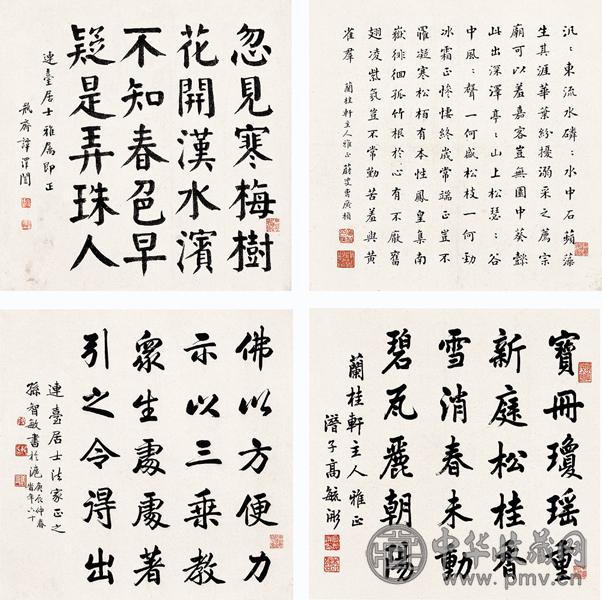 忽見寒梅樹
花開漢水濱
不知春色早
疑是弄珠人
連臺居士雅屬即正
瓶齋譚澤闓
汎〻東流水磷〻水中石蘋藻
生其涯華葉紛擾溺采之薦宗
廟可以羞嘉客豈無園中葵懿
此出深澤亭〻山上松瑟〻谷
中風〻聲一何盛松枝一何勁
冰霜正慘悽終歲常端正豈不
罹凝寒松柏有本性鳳皇集南
嶽徘徊孤竹根於心有不厭奮
翅凌紫氛豈不常勤苦羞與黃
雀群
蘭桂軒主人雅正
佛以方便力
示以三乘教
眾生處處著
引之令得出
連臺居士法家正之
孫智敏書於滬
庚辰仲春
寶冊瓊瑤重
新庭松桂香
雪消春未動
碧瓦麗朝陽
蘭桂軒主人雅正
潛子高毓浵
中华收藏网
www.pmv.cn